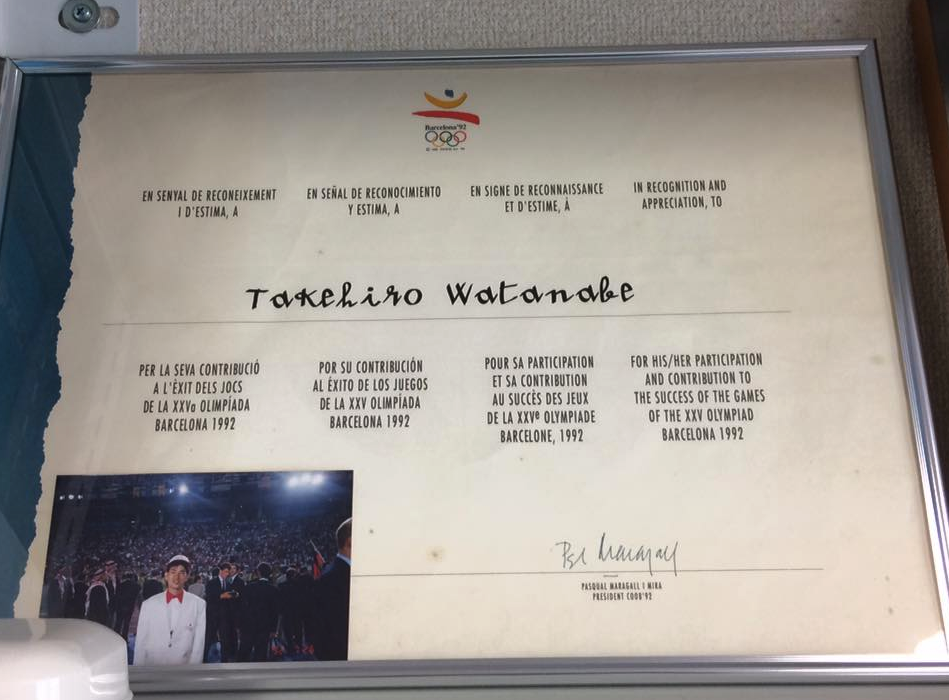 Barcelona'92
EN SENYAL DE RECONEIXEMENT
I D'ESTIMA, A
EN SEÑAL DE RECONOCIMIENTO
Y ESTIMA, A
EN SIGNE DE RECONNAISSANCE
ET D'ESTIME, À
IN RECOGNITION AND
APPRECIATION, TO
Takehiro Watanabe
PER LA SEVA CONTRIBUCIÓ
A L'ÈXIT DELS JOCS
DE LA XXVa OLIMPÍADA
BARCELONA 1992
POR SU CONTRIBUCIÓN
AL ÉXITO DE LOS JUEGOS
DE LA XXV OLIMPÍADA
BARCELONA 1992
POUR SA PARTICIPATION
ET SA CONTRIBUTION
AU SUCCÈS DES JEUX
DE LA XXVe OLYMPIADE
BARCELONE, 1992
FOR HIS/HER PARTICIPATION
AND CONTRIBUTION TO
THE SUCCESS OF THE GAMES
OF THE XXV OLYMPIAD
BARCELONA 1992
PASQUAL MARAGALL I MIRA
PRESIDENT COOB'92